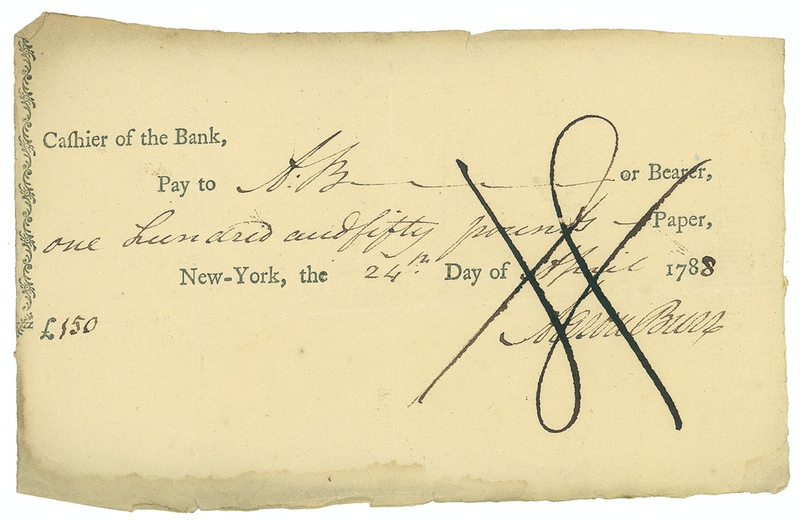 Caſhier of the Bank,
Pay to A: B or Bearer,
one hundred and fifty pounds Paper,
New-York, the 24th Day of April 1788
£150
Aaron Burr